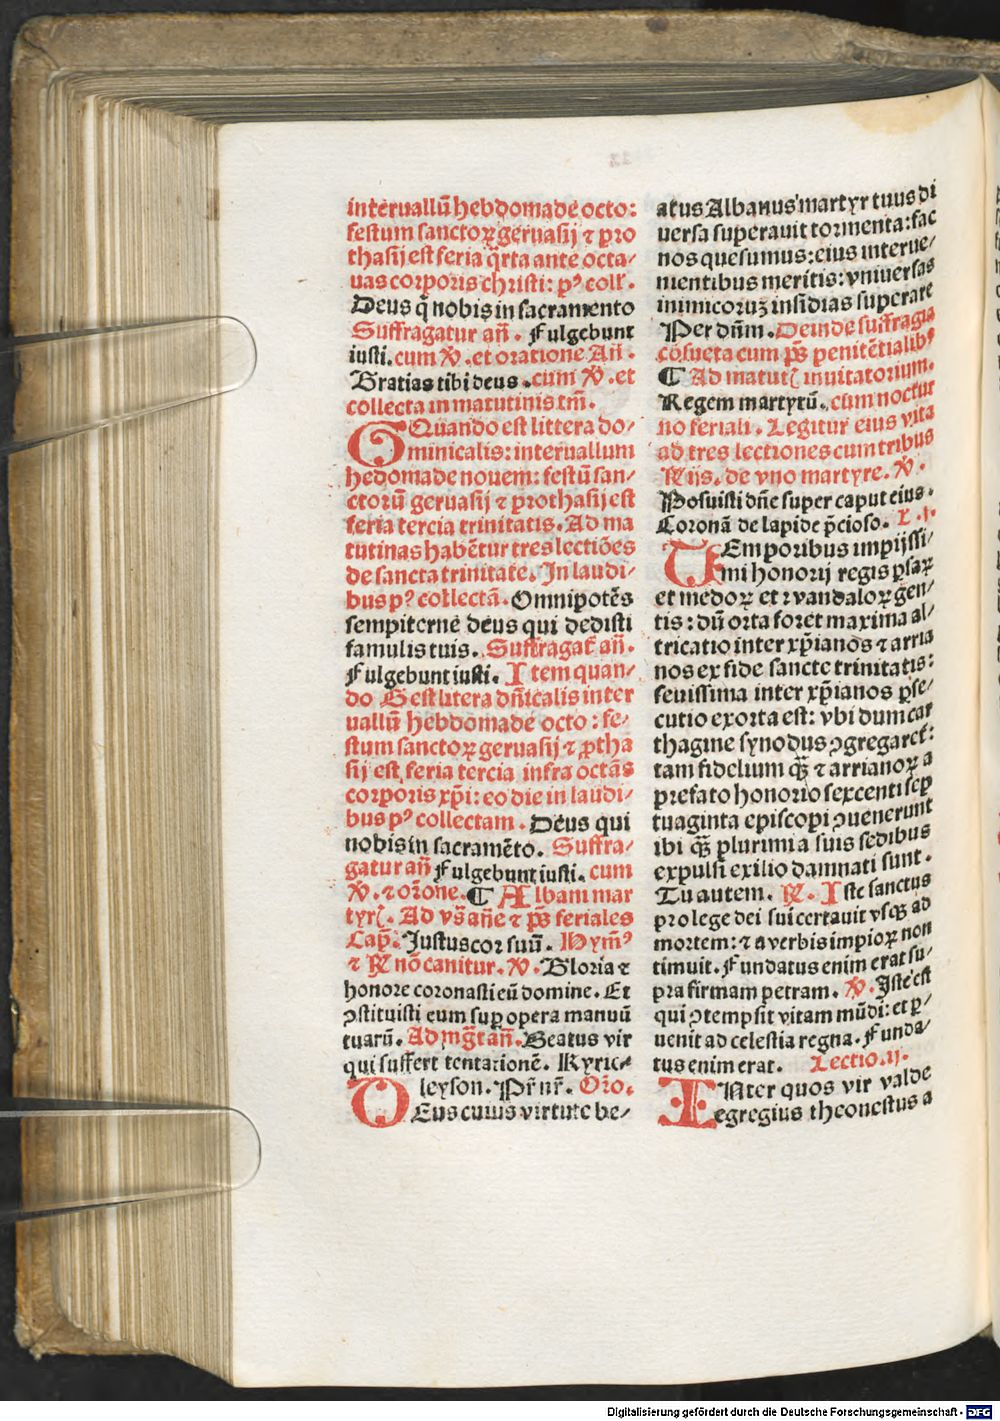 interuallū hebdomade octo:
festum sanctoꝝ geruasij ⁊ pro
thasij est feria q̄rta ante octa⸗
uas corporis christi: pꝰ coll'.
Deus q̄ nobis in sacramento
Suffragatur an̄. Fulgebunt
iusti. cum ℣. et oratione An̄.
Gratias tibi deus. cum ℣. et
collecta in matutinis tm̄.
QUando est littera do⸗
minicalis: interuallum
hedomade nouem: festū san⸗
ctorū geruasij ⁊ prothasij est
feria tercia trinitatis. Ad ma
tutinas habētur tres lectiōes
de sancta trinitate. In laudi⸗
bus pꝰ collectā. Omnipotēs
sempiterne deus qui dedisti
famulis tuis. Suffragat̄ an̄.
Fulgebunt iusti. Item quan⸗
do G est litera dn̄icalis inter
uallū hebdomade octo: fe⸗
stum sanctoꝝ geruasij ⁊ ꝓtha
sij est feria tercia infra octās
corporis xp̄i: eo die in laudi⸗
bus pꝰ collectam. Deus qui
nobis in sacramēto. Suffra⸗
gatur an̄ Fulgebunt iusti. cum
℣. ⁊ or̄one. ¶ Albani mar
tyrꝭ. Ad vs̄ an̄e ⁊ ps̄ feriales
Cap̄. Justus cor suū. Hymꝰ
⁊ ℟ nō canitur. ℣. Gloria ⁊
honore coronasti eū domine. Et
ꝯstituisti eum suꝑ opera manuū
tuarū. Ad mḡt an̄. Beatus vir
qui suffert tentationē. Kyrie⸗
leyson. Pr̄ nr̄. Or̄o.
DEus cuius virtute be⸗
atus Albanus martyr tuus di
uersa superauit tormenta: fac
nos quesumus: eius interue⸗
nientibus meritis: vniuersas
inimicoruꝫ insidias superare
Per dn̄m. Deinde suffragia
cōsueta cum ps̄ penitētialibꝰ
¶ Ad matutꝭ inuitatorium.
Regem martyrū. cum noctur
no feriali. Legitur eius vita
ad tres lectiones cum tribus
℟ijs. de vno martyre. ℣.
Posuisti dn̄e super caput eius.
Coronā de lapide p̄cioso. L.j.
TEmporibus impijssi⸗
mi honorij regis ꝑsaꝝ
et medoꝝ et ⁊ vandaloꝝ gen⸗
tis: dū orta foret maxima al⸗
tricatio inter xp̄ianos ⁊ arria
nos ex fide sancte trinitatis:
seuissima inter xp̄ianos ꝑse⸗
cutio exorta est: vbi dum car
thagine synodus ꝯgregaret̄:
tam fidelium qꝫ̄ ⁊ arrianoꝝ a
prefato honorio sexcenti seꝑ
tuaginta episcopi ꝯuenerunt
ibi qꝫ̄ plurimi a suis sedibus
expulsi exilio damnati sunt.
Tu autem. ℟. Iste sanctus
pro lege dei sui certauit vsqꝫ ad
mortem: ⁊ a verbis impioꝝ non
timuit. Fundatus enim erat su⸗
pra firmam petram. ℣. Iste est
qui ꝯtempsit vitam mūdi: et ꝑ⸗
uenit ad celestia regna. Funda⸗
tus enim erat. Lectio.ij.
INter quos vir valde
egregius theonestus a
Digitalisierung gefördert durch die Deutsche Forschungsgemeinschaft - DFG